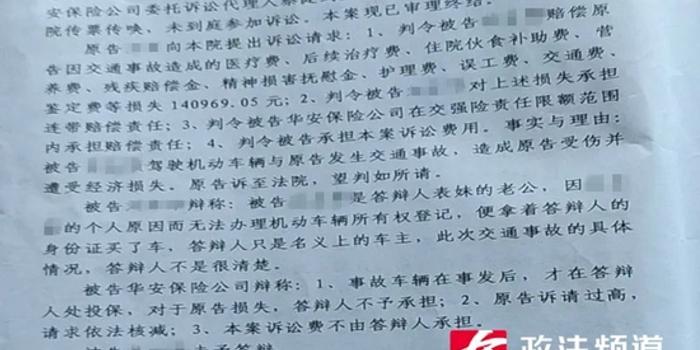 安保险公司委托诉讼代理人
院传票传唤，未到庭参加诉讼。本案现已审理终结。
原告 向本院提出诉讼请求：1、判令被告 赔偿原
告因交通事故造成的医疗费、后续治疗费、住院伙食补助费、营
养费、残疾赔偿金、精神损害抚慰金、护理费、误工费、交通费、
鉴定费等损失 140969.05 元；2、判令被告 对上述损失承担
连带赔偿责任；3、判令被告华安保险公司在交强险责任限额范围
内承担赔偿责任；4、判令被告承担本案诉讼费用。事实与理由：
被告 驾驶机动车辆与原告发生交通事故，造成原告受伤并
遭受经济损失。原告诉至法院，望判如所请。
被告 辩称：被告 是答辩人表妹的老公，因
的个人原因而无法办理机动车辆所有权登记，便拿着答辩人的
身份证买了车，答辩人只是名义上的车主，此次交通事故的具体
情况，答辩人不是很清楚。
被告华安保险公司辩称：1、事故车辆在事发后，才在答辩
人处投保，对于原告损失，答辩人不予承担；2、原告诉请过高，
请求依法核减；3、本案诉讼费不由答辩人承担。
政法频道